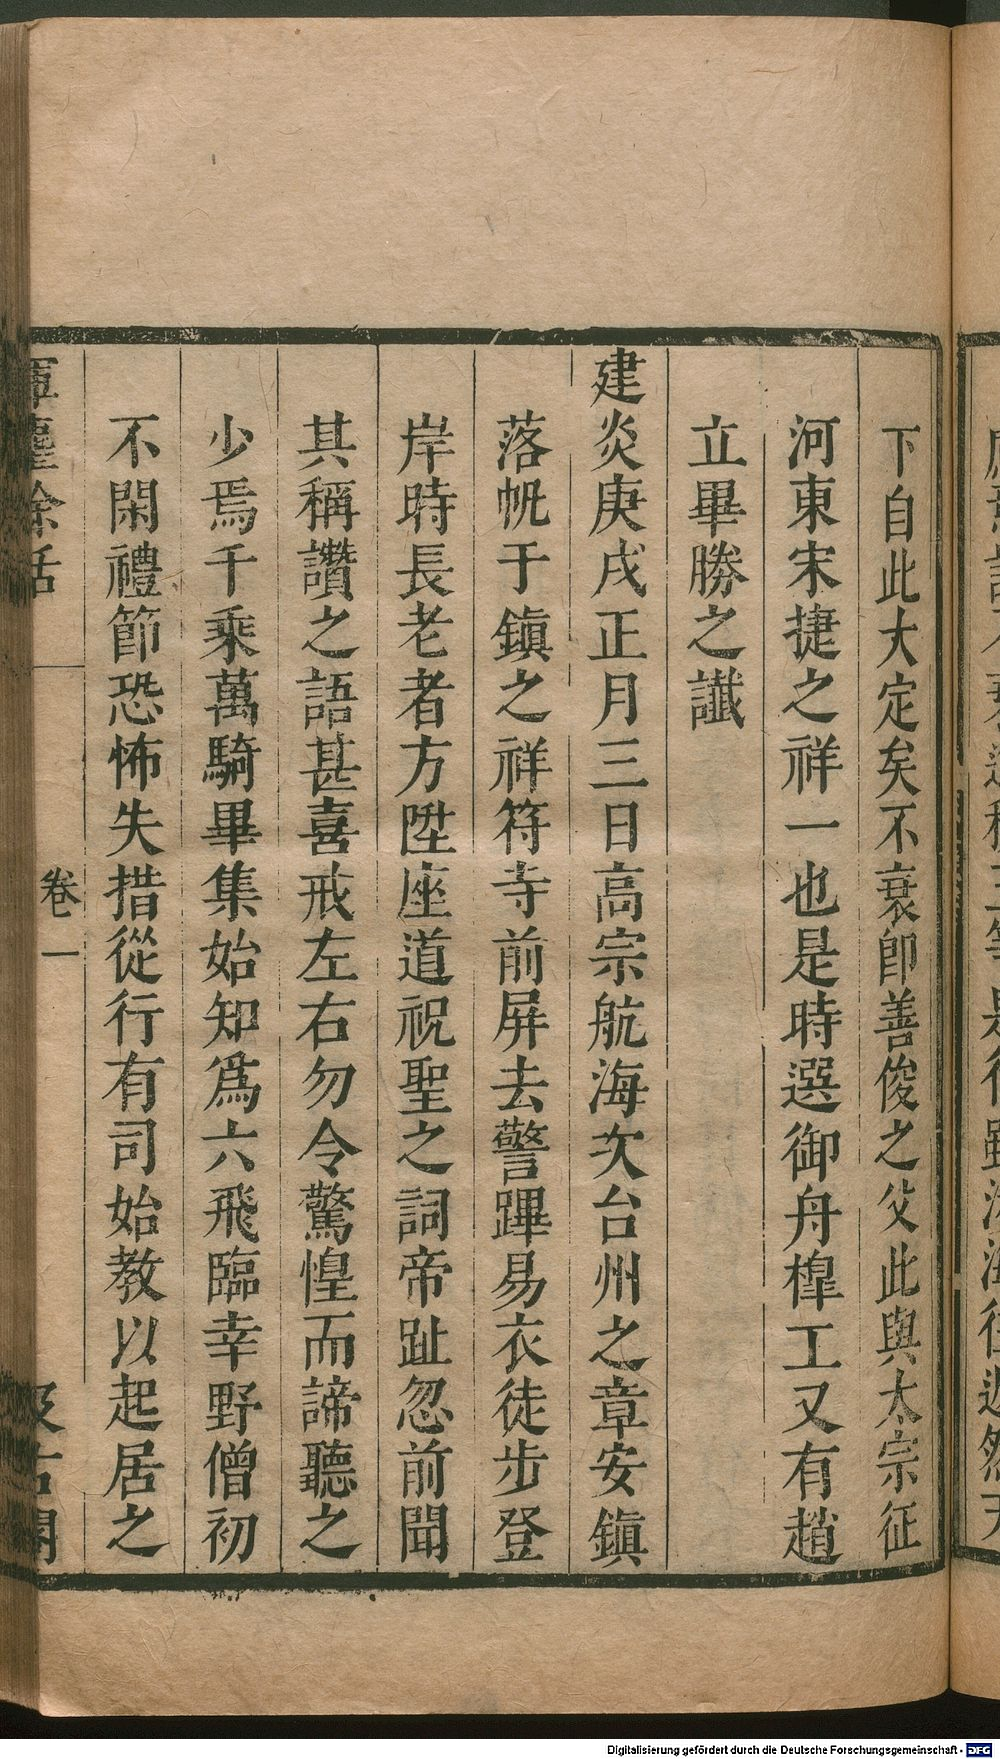 下自此大定矣不衰卽善俊之父此與太宗征
河東宋捷之祥一也是時選御舟槹工又有趙
立畢勝之讖
建炎庚戌正月三日高宗航海次台州之章安鎮
落帆于鎮之祥符寺前屏去警蹕易衣徒步登
岸時長老者方陞座道祝聖之詞帝趾忽前聞
其稱讚之語甚喜戒左右勿令驚惶而諦聽之
少焉千乘萬騎畢集始知爲六飛臨幸野僧初
不閑禮節恐怖失措從行有司始教以起居之
卷一
Digitalisierung gefördert durch die Deutsche Forschungsgemeinschaft - DFG